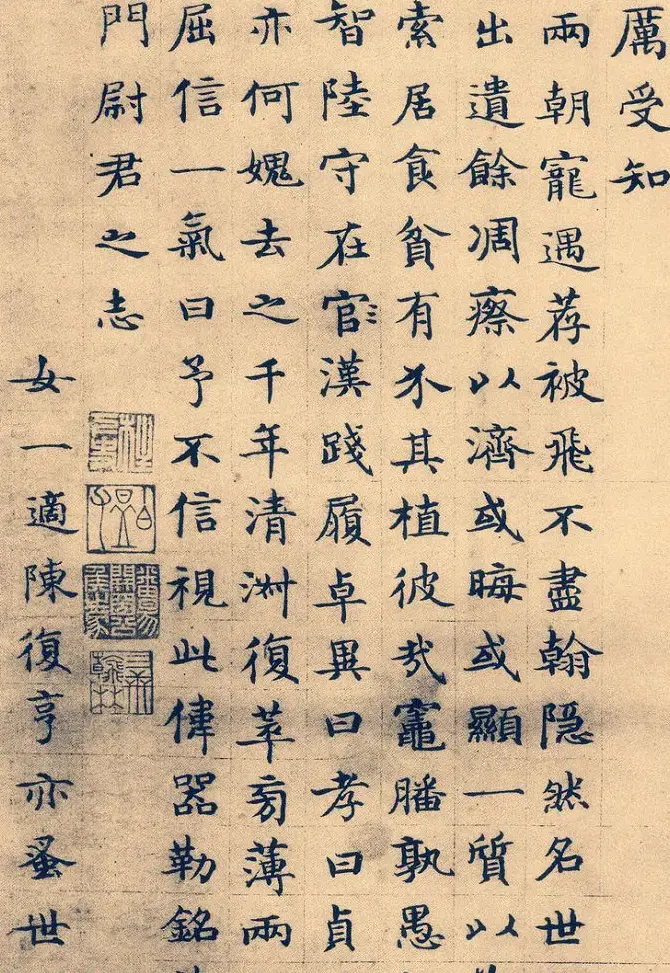 厲受知
兩朝寵遇荐被飛不盡翰隱然名世
出遺餘凋瘵以濟或晦或顯一質以
索居食貧有不其植彼哉竈膰孰愚
智陸守在官漢踐履卓異曰孝曰貞
亦何媿去之千年清洲復萃旁薄兩
屈信一氣曰予不信視此偉器勒銘
門尉君之志
女一適陳復亨亦蚤世